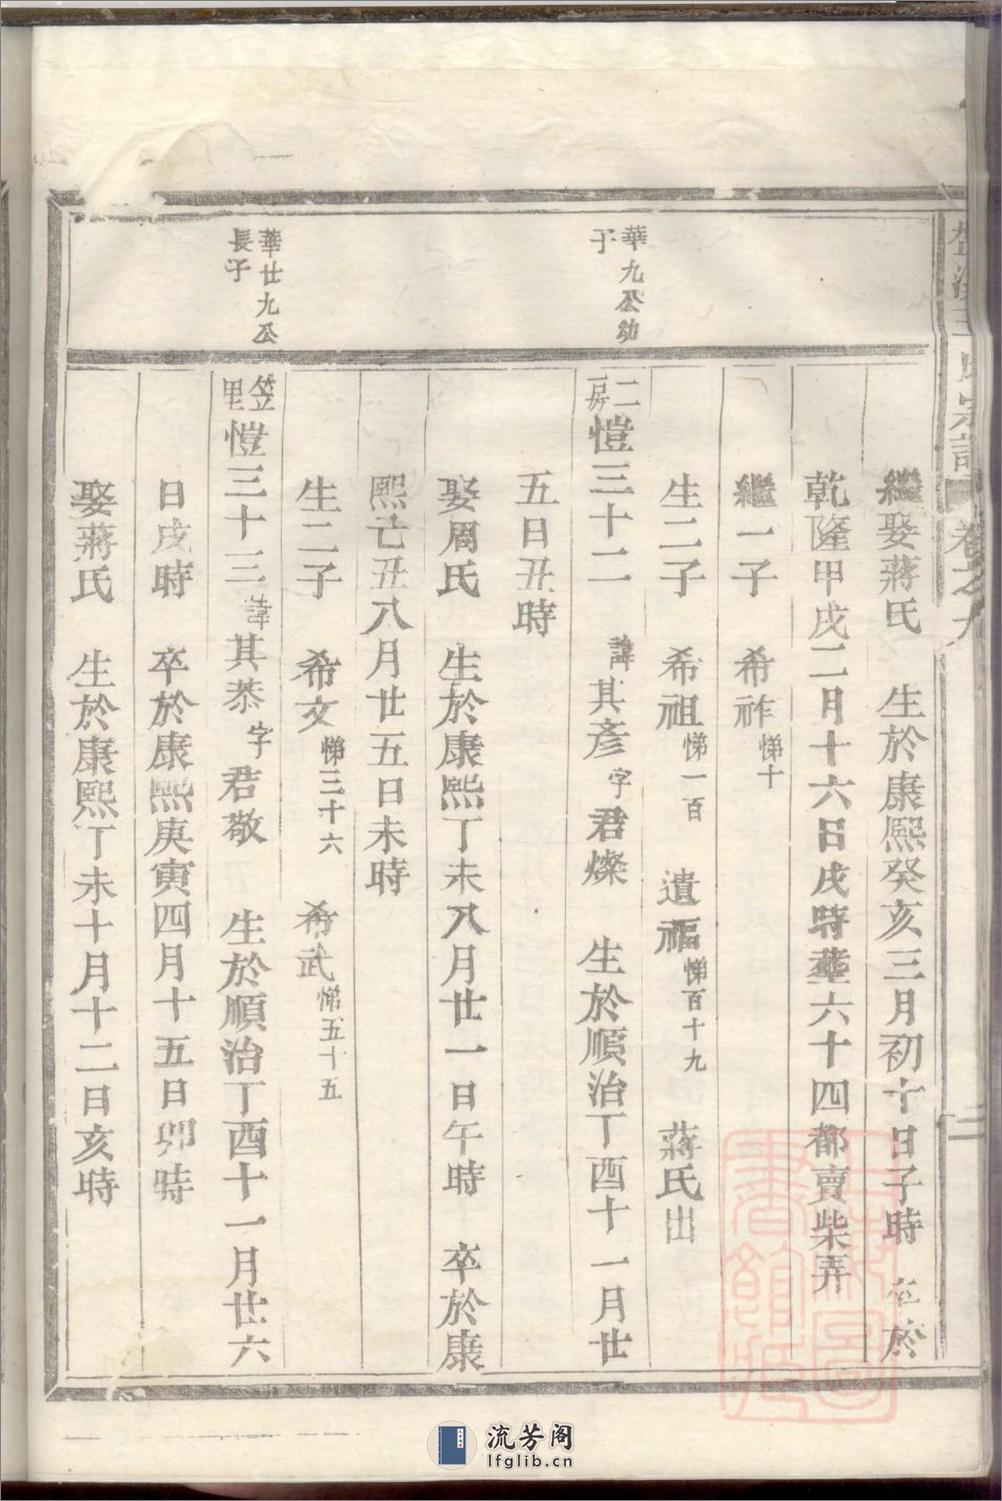 王氏宗譜 卷之九 二
繼娶蔣氏 生於康熙癸亥三月初十日子時 卒於
乾隆甲戌二月十六日戌時葬六十四都賣柴弄
繼一子 希祚悌十
生二子 希祖悌一百 遺福悌百十九 蔣氏出
華九公幼子
二房愷三十二 諱其彥字君燦 生於順治丁酉十一月廿
五日丑時
娶周氏 生於康熙丁未八月廿一日午時 卒於康
熙己丑八月廿五日未時
生二子 希文悌三十六 希武悌五十五
華廿九公長子
笠里愷三十三諱其恭字君敬 生於順治丁酉十一月廿六
日戌時 卒於康熙庚寅四月十五日卯時
娶蔣氏 生於康熙丁未十月十二日亥時
流芳阁
lfglib.cn